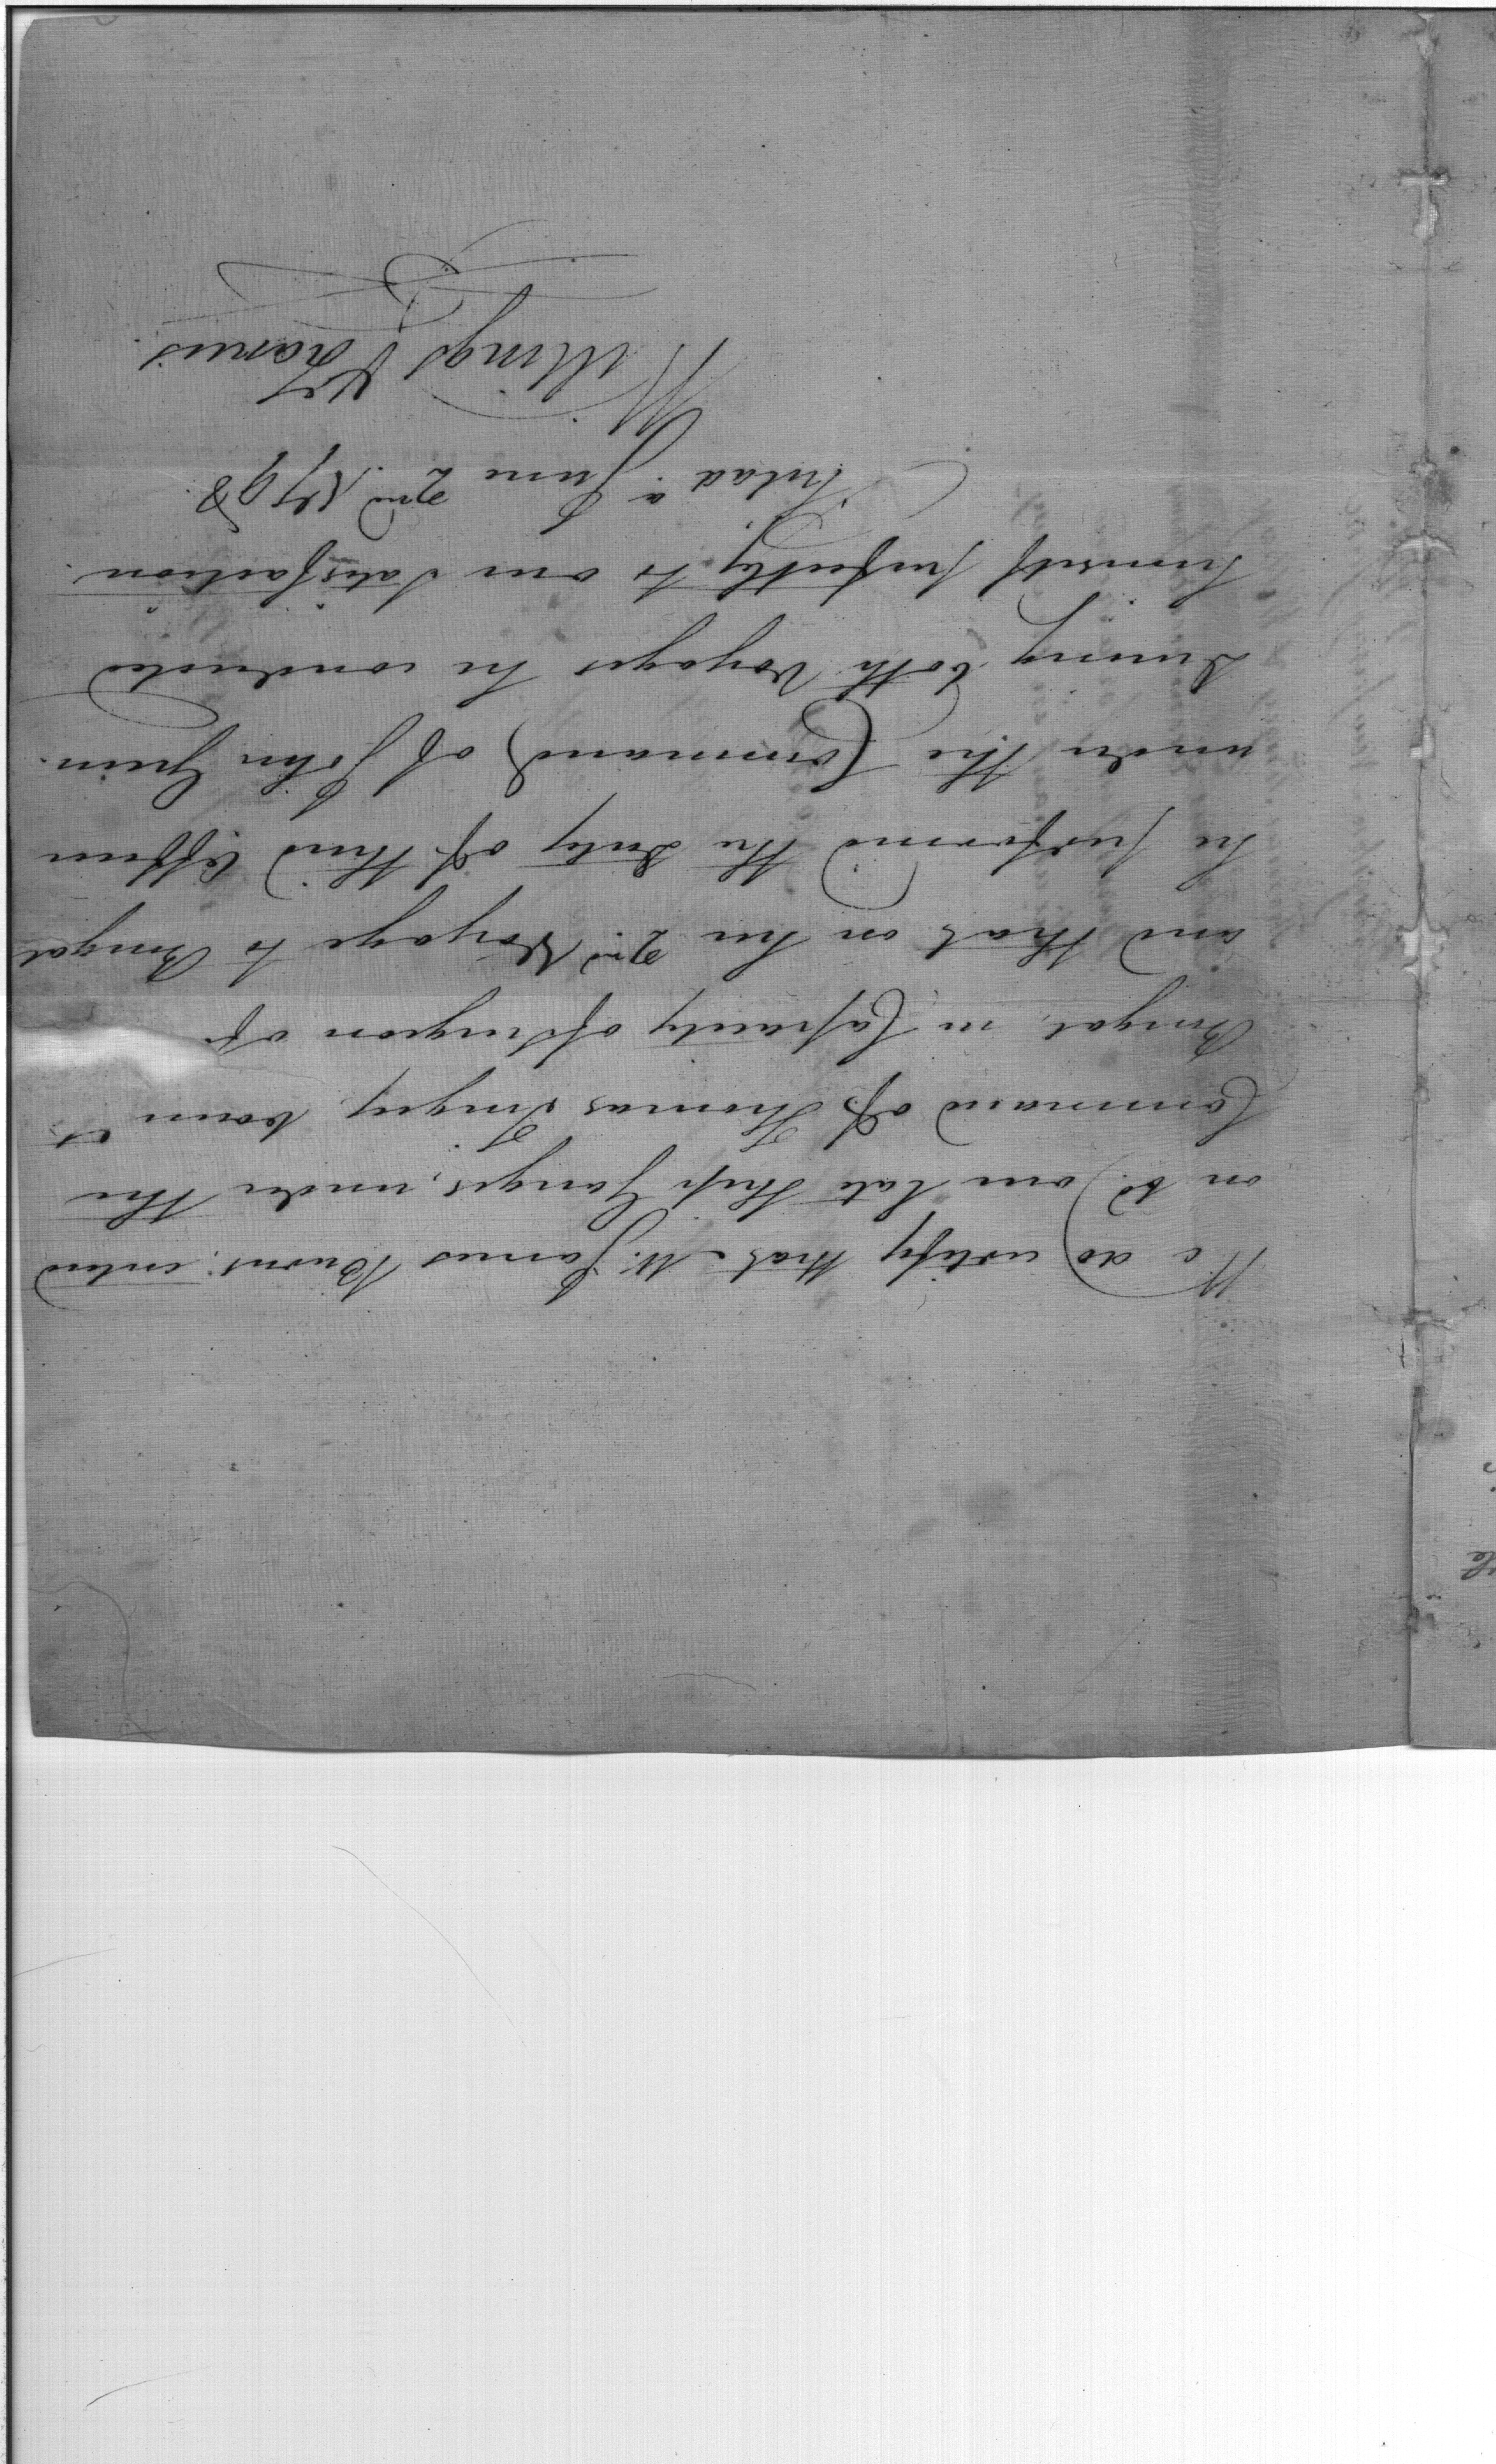 We do certify that Mr. James Burns; entered
on bd. our late Ship Ganges, under the
Command of Thomas Tingey, bound to
Bengal, in Capacity of Surgeon of
and that on her 2nd Voyage to Bengal
he performed the duty of third Officer
under the Command of John Green.
During both Voyages he conducted
himself perfectly to our Satisfaction.
Philada. June 2nd. 1798.
Willings & Francis.